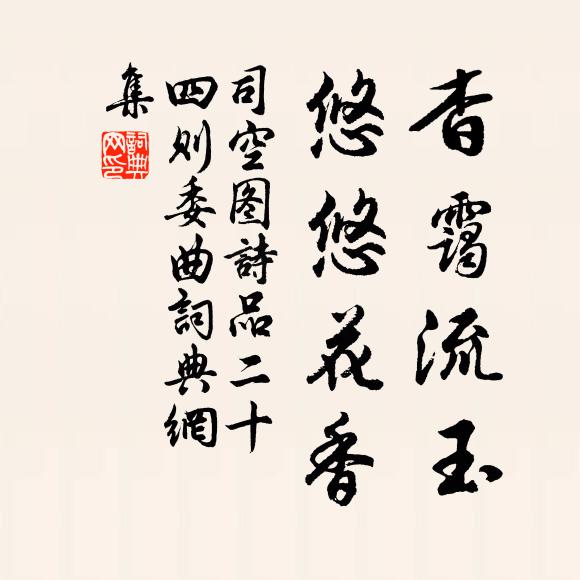 杳靄流玉
悠悠花香
司空图詩品二十
四则委曲詞典網
集
詞典
网印